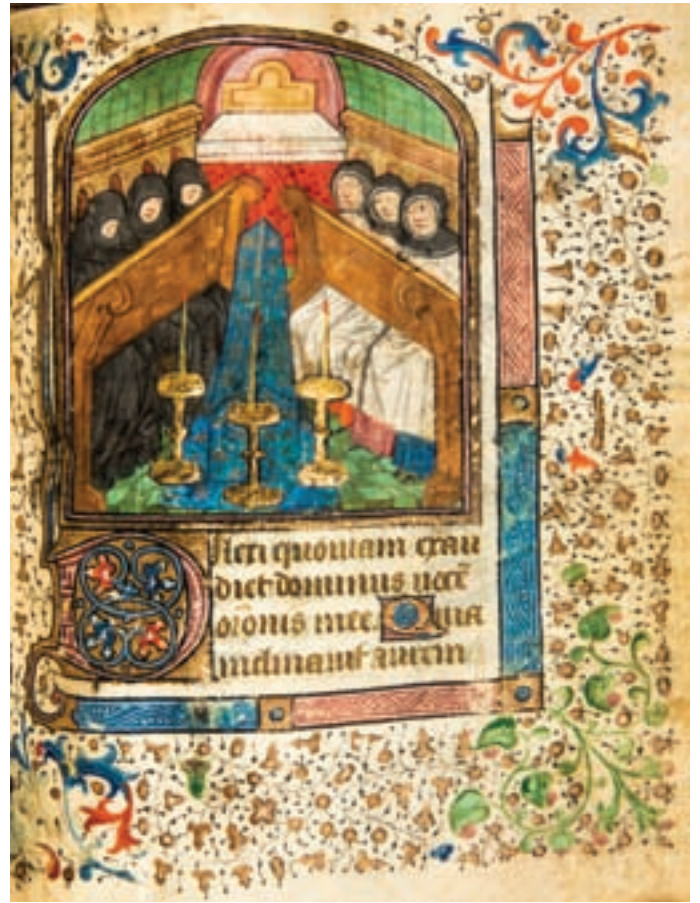 Dilexi quoniam exau
diet dominus vocē
orōnis mee. Quia
inclinauit aurem